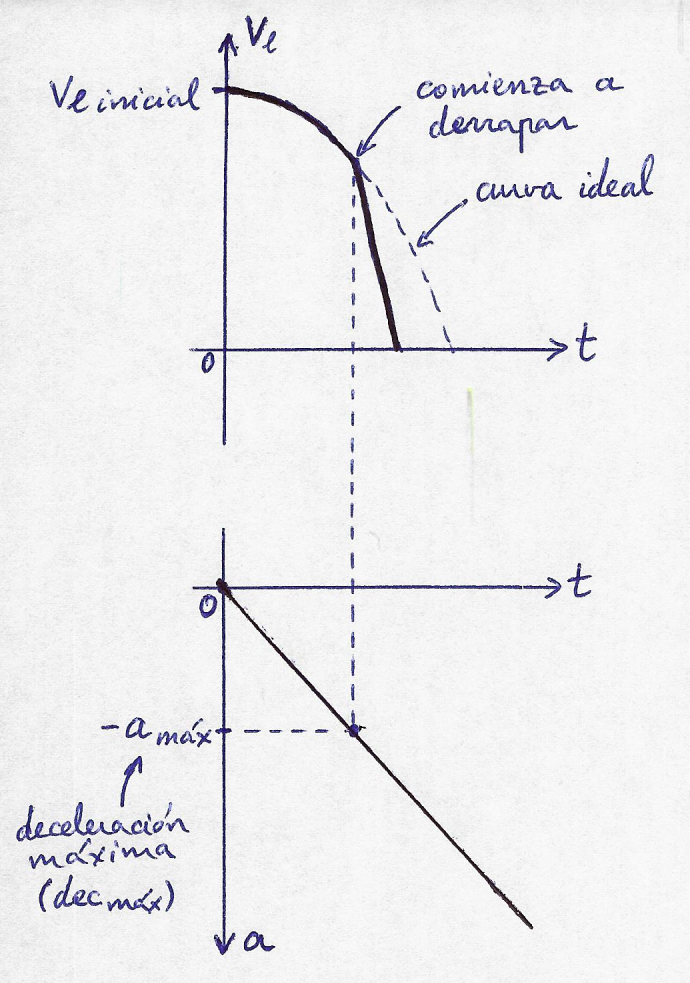 Ve
Ve inicial
comienza a
derrapar
curva ideal
t
0
t
0
-a máx
deceleración
máxima
(dec máx)
a